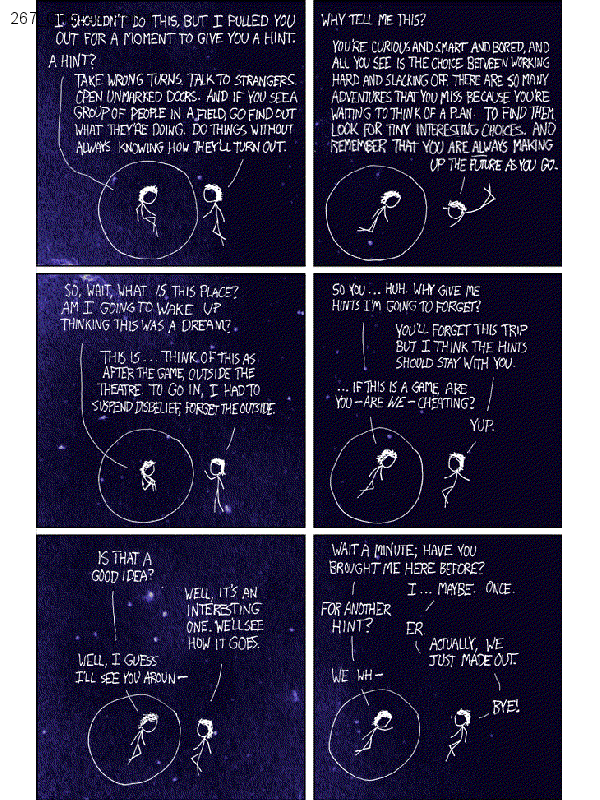 267
I SHOULDN'T DO THIS, BUT I PULLED YOU
OUT FOR A MOMENT TO GIVE YOU A HINT.
A HINT?
TAKE WRONG TURNS. TALK TO STRANGERS.
OPEN UNMARKED DOORS. AND IF YOU SEE A
GROUP OF PEOPLE IN A FIELD, GO FIND OUT
WHAT THEY'RE DOING. DO THINGS WITHOUT
ALWAYS KNOWING HOW THEY'LL TURN OUT.
WHY TELL ME THIS?
YOU'RE CURIOUS AND SMART AND BORED, AND
ALL YOU SEE IS THE CHOICE BETWEEN WORKING
HARD AND SLACKING OFF. THERE ARE SO MANY
ADVENTURES THAT YOU MISS BECAUSE YOU'RE
WAITING TO THINK OF A PLAN. TO FIND THEM,
LOOK FOR TINY INTERESTING CHOICES. AND
REMEMBER THAT YOU ARE ALWAYS MAKING
UP THE FUTURE AS YOU GO.
SO, WAIT, WHAT IS THIS PLACE?
AM I GOING TO WAKE UP
THINKING THIS WAS A DREAM?
THIS IS... THINK OF THIS AS
AFTER THE GAME, OUTSIDE THE
THEATRE. TO GO IN, I HAD TO
SUSPEND DISBELIEF, FORGET THE OUTSIDE.
SO YOU... HUH. WHY GIVE ME
HINTS I'M GOING TO FORGET?
YOU'LL FORGET THIS TRIP
BUT I THINK THE HINTS
SHOULD STAY WITH YOU.
... IF THIS IS A GAME, ARE
YOU—ARE WE—CHEATING?
YUP.
IS THAT A
GOOD IDEA?
WELL, IT'S AN
INTERESTING
ONE. WE'LL SEE
HOW IT GOES.
WELL, I GUESS
I'LL SEE YOU AROUN—
WAIT A MINUTE; HAVE YOU
BROUGHT ME HERE BEFORE?
I... MAYBE. ONCE.
FOR ANOTHER
HINT?
ER
ACTUALLY, WE
JUST MADE OUT.
WE WH—
BYE!